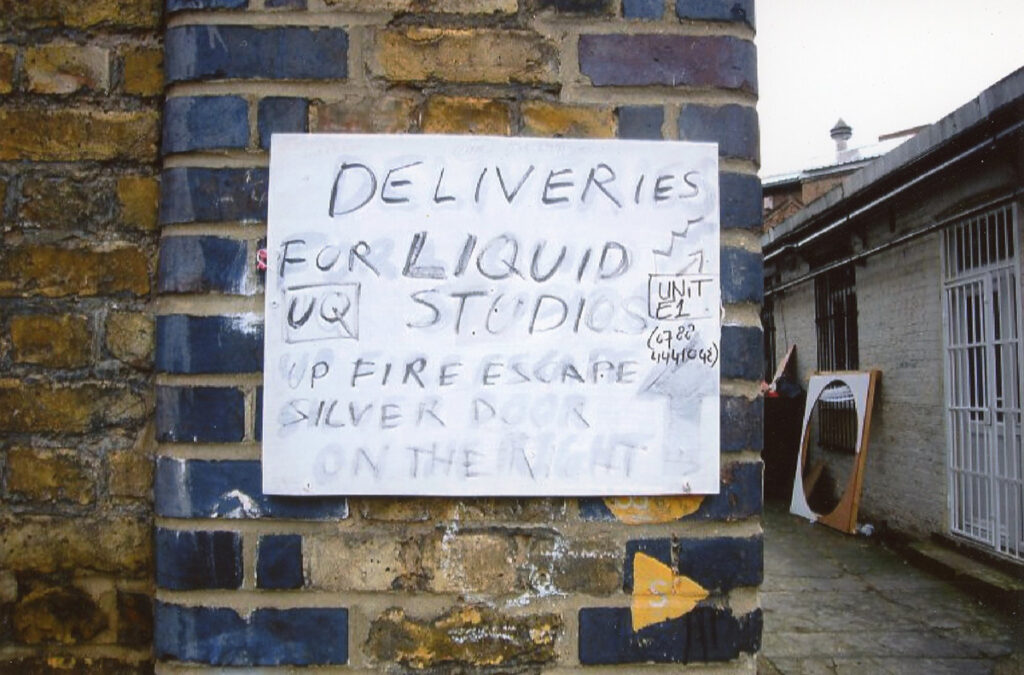 DELIVERIES
FOR LIQUID
UQ STUDIOS
UNIT
E1
UP FIRE ESCAPE
SILVER DOOR
ON THE RIGHT
S